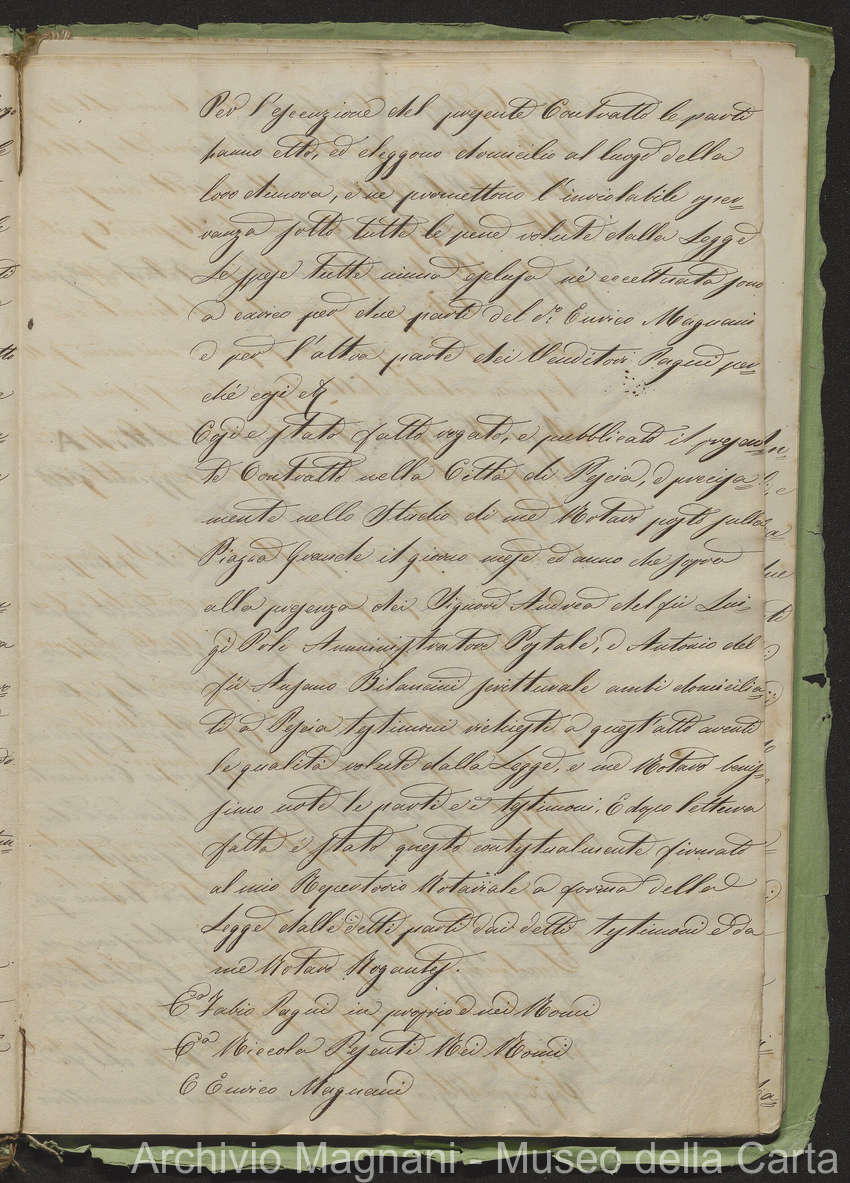 Per l'esecuzione del presente Contratto le parti
hanno etto, ed eleggono domicilio al luogo della
loro dimora, e ne promettono l'inviolabile osser=
vanza sotto tutte le pene volute dalla Legge
Le spese tutte niuna esclusa nè eccettuata sono
a carico per due parti del Sr. Enrico Magnani
e per l'altra parte dei Venditori Pagni per=
chè così &
Così è stato fatto rogato, e pubblicato il presen=
te Contratto nella Città di Pescia, e precisa=
mente nello Studio di me Notaro posto sulla
Piazza Grande il giorno mese ed anno che sopra
alla presenza dei Signori Andrea del fu Lui=
gi Pole Amministratore Postale, e Antonio del
fu Ansano Bilancini scritturale ambi domicilia=
ti a Pescia testimoni richiesti a quest'atto aventi
le qualità volute dalla Legge, e me Notaro benis=
simo note le parti e i testimoni. E dopo lettura
fatta è stato questo contestualmente firmato
al mio Repertorio Notariale a forma della
Legge dalle dette parti dai detti testimoni e da
me Notaro Rogante.
Co. Fabio Pagni in proprio e nei Nomi
Co. Niccola Pesenti Nei Nomi
C Enrico Magnani
Archivio Magnani - Museo della Carta